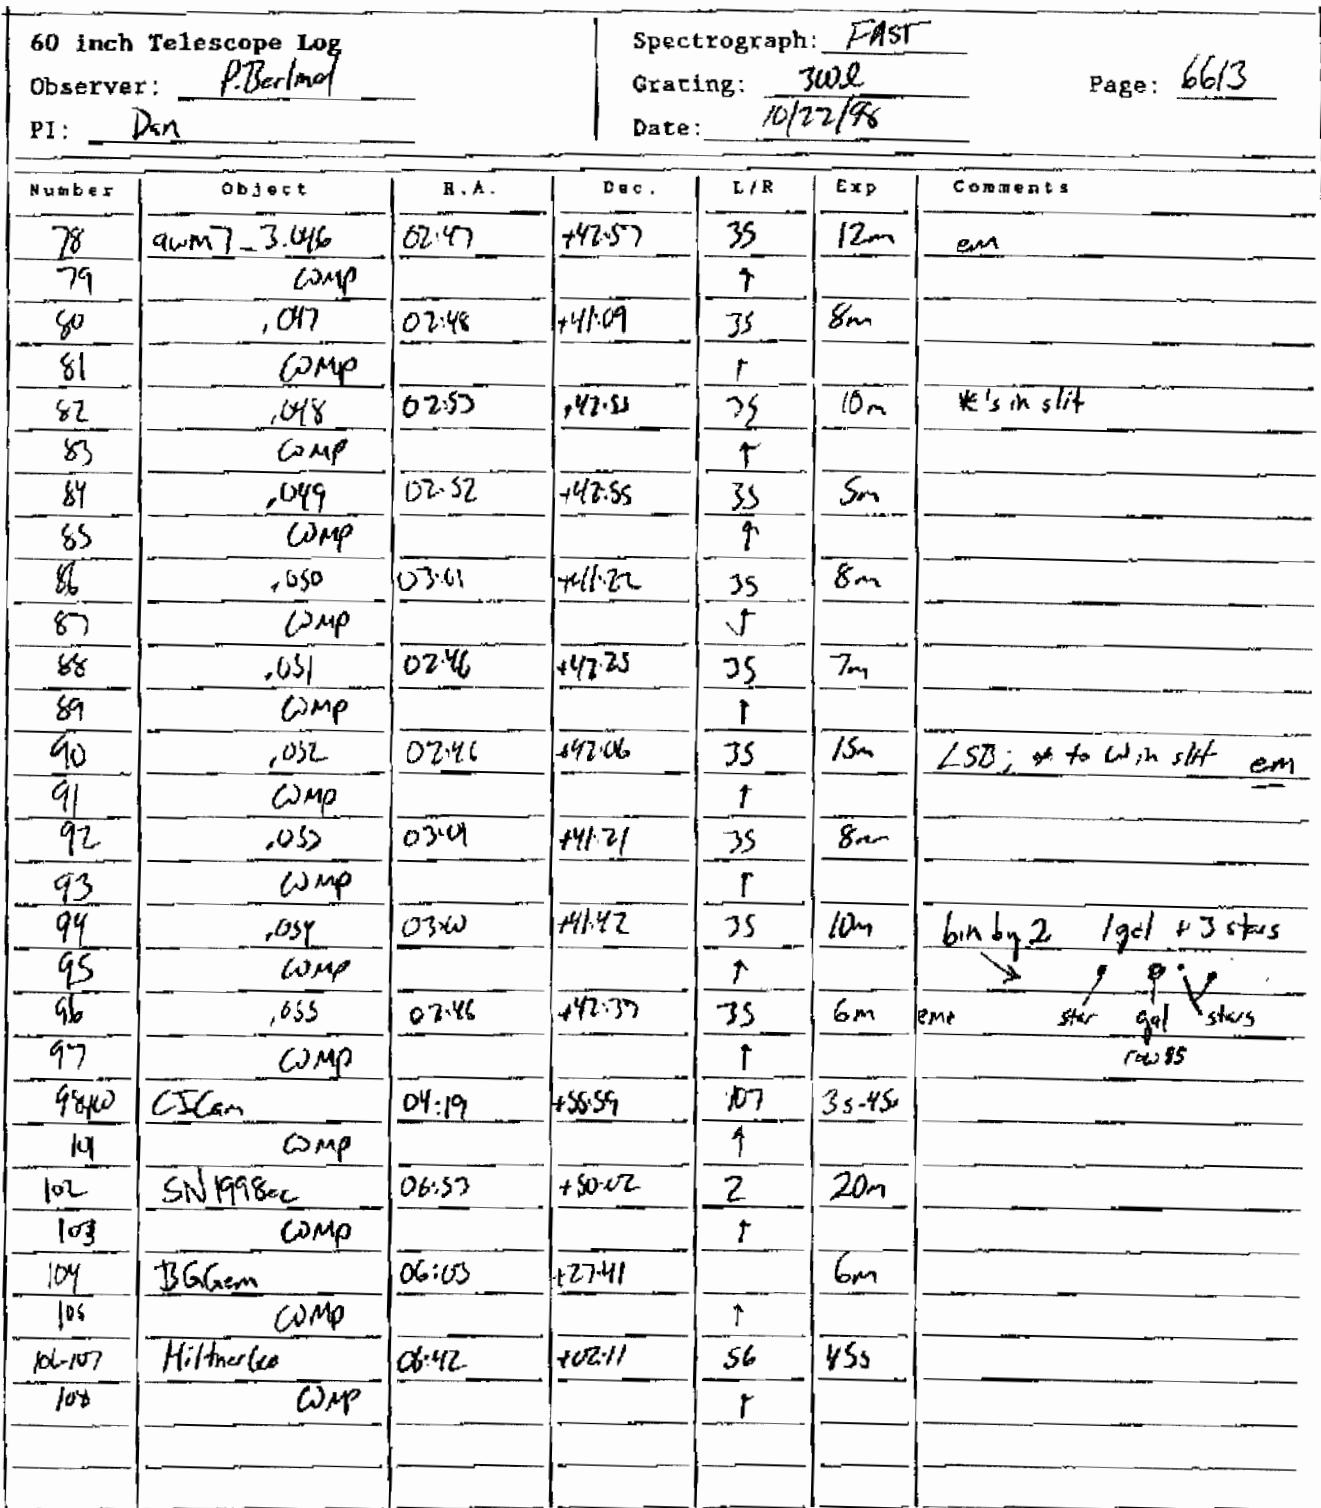 60 inch Telescope Log
Observer: P. Berlind
PI: Dan
Spectrograph: FAST
Grating: 300l
Date: 10/22/98
Page: 6613
Number Object R.A. Dec. L/R Exp Comments
78 awm7_3.046 02:47 +42:57 35 12m em
79 COMP ↑
80 .047 02:48 +41:09 35 8m
81 COMP ↑
82 .048 02:53 +42:55 35 10m *'s in slit
83 COMP ↑
84 .049 02:52 +42:55 35 5m
85 COMP ↑
86 .050 03:01 +41:22 35 8m
87 COMP ↑
88 .051 02:46 +42:25 35 7m
89 COMP ↑
90 .052 02:46 +42:06 35 15m LSB; * to W in slit em
91 COMP ↑
92 .053 03:01 +41:21 35 8m
93 COMP ↑
94 .054 03:00 +41:42 35 10m bin by 2 1gal + 3 stars
95 COMP ↑
96 .055 02:46 +42:37 35 6m eme star gal stars
97 COMP ↑ row 85
98-100 CI Cam 04:19 +55:59 107 3s-45s
101 COMP ↑
102 SN1998ec 06:53 +50:02 2 20m
103 COMP ↑
104 BG Gem 06:03 +27:41 6m
105 COMP ↑
106-107 Hiltner600 06:42 +02:11 56 45s
108 COMP ↑